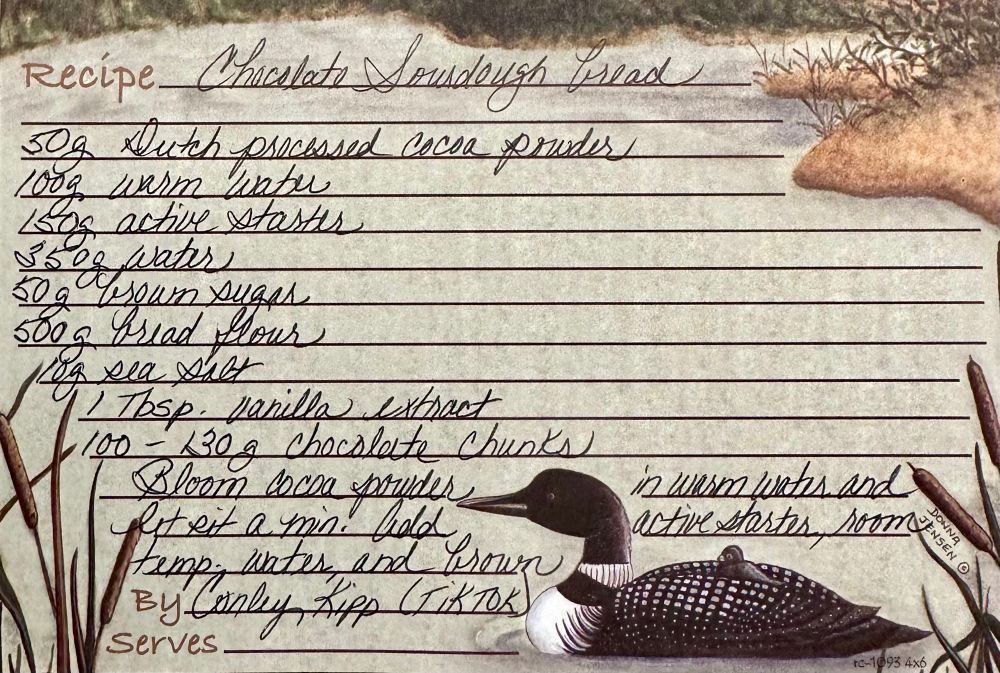 Recipe Chocolate Sourdough bread
50g Dutch processed cocoa powder
100g warm water
150g active starter
350g water
50g brown sugar
500g bread flour
10g sea salt
1 Tbsp. vanilla extract
100 - 130g chocolate chunks
Bloom cocoa powder in warm water and
let sit a min. Add active starter, room
temp. water, and brown
By Conley Kipp (TikTok)
Serves
DONNA JENSEN ©
rc-1093 4x6